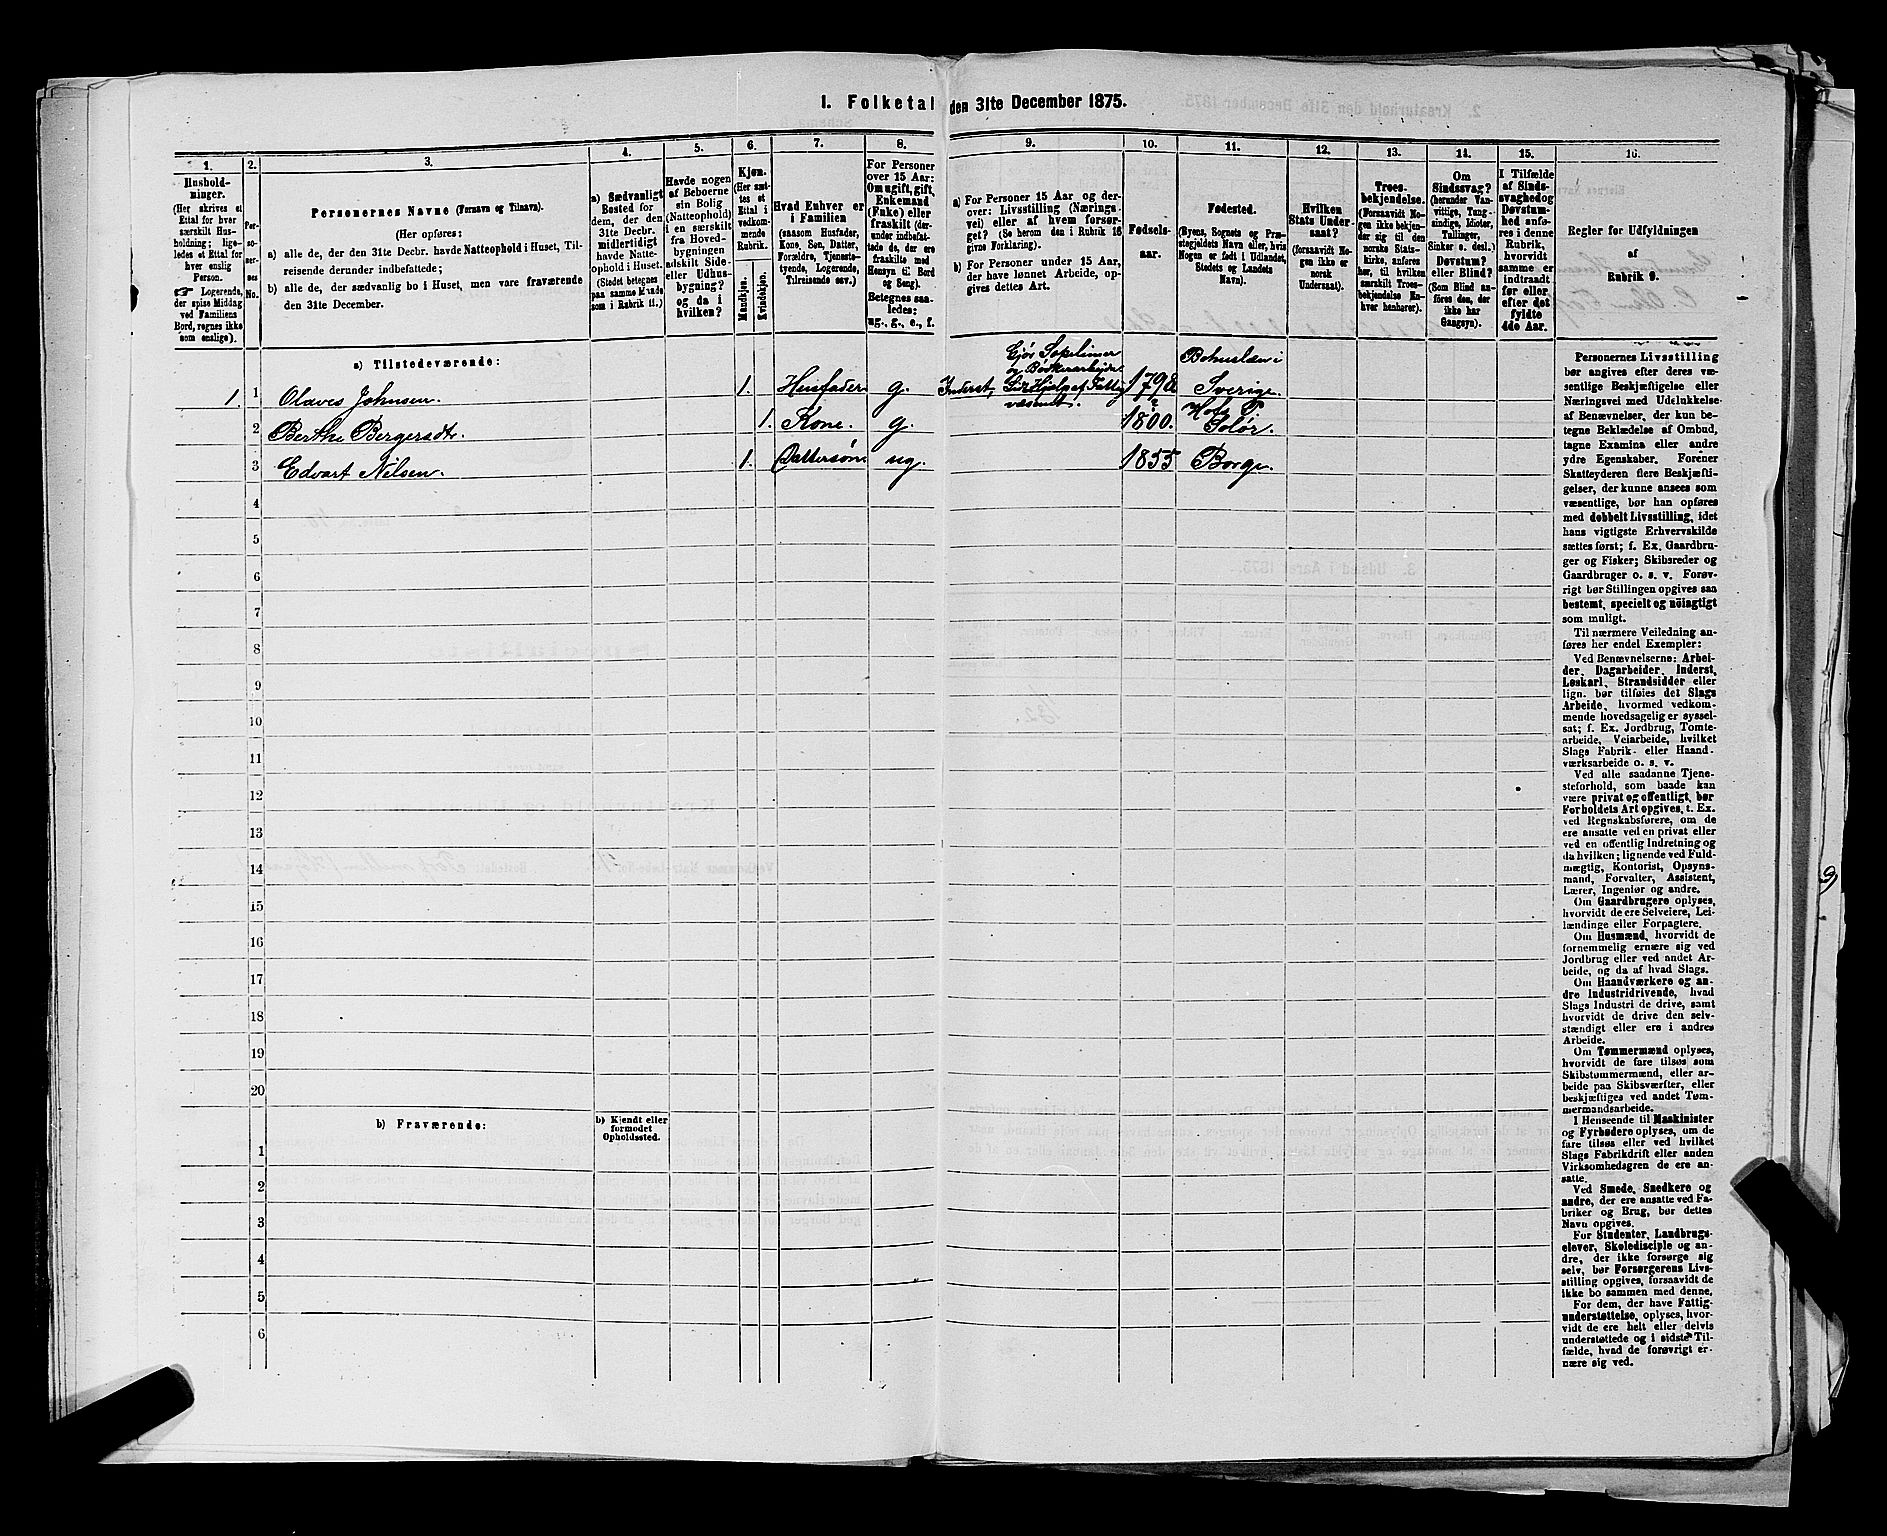 1. Folketal den 31te December 1875.
1. 2. 3. 4. 5. 6. 7. 8. 9. 10. 11. 12. 13. 14. 15. 16.
Hushold-
ninger.
(Her skrives et
Ettal for hver
særskilt Hus-
holdning; lige-
ledes et Ettal for
hver enslig
Person.
☞ Logerende,
der spise Middag
ved Familiens
Bord, regnes ikke
som enslige).
Per-
so-
ner-
nes
No.
Personernes Navne (Fornavn og Tilnavn).
(Her opføres:
a) alle de, der den 31te Decbr. havde Natteophold i Huset, Til-
reisende derunder indbefattede;
b) alle de, der sædvanlig bo i Huset, men vare fraværende
den 31te December.
a) Sædvanligt
Bosted for
dem, der den
31te Decbr.
midlertidigt
havde Natte-
ophold i Huset.
(Stedet betegnes
paa samme Maade
som i Rubrik 11.)
Havde nogen
af Beboerne
sin Bolig
(Natteophold)
i en særskilt
fra Hoved-
bygningen
adskilt Side-
eller Udhus-
bygning?
og da i
hvilken?
Kjøn.
(Her sæt-
tes et
Ettal i
vedkom-
mende
Rubrik.
Mandkjøn.
Kvindekjøn.
Hvad Enhver er
i Familien
(saasom Husfader,
Kone, Søn, Datter,
Forældre, Tjeneste-
tyende, Logerende,
Tilreisende osv.)
For Personer
over 15 Aar:
Om ugift, gift,
Enkemand
(Enke) eller
fraskilt (der-
under indbefat-
tede de, der ere
fraskilte med
Hensyn til Bord
og Seng).
Betegnes saa-
ledes:
ug., g., e., f.
a) For Personer 15 Aar og der-
over: Livsstilling (Nærings-
vei) eller af hvem forsør-
get? (Se herom den i Rubrik 16
givne Forklaring).
b) For Personer under 15 Aar,
der have lønnet Arbeide, op-
gives dettes Art.
Fødsels-
aar.
Fødested.
(Byens, Sognets og Præ-
stegjeldets Navn eller, hvis
Nogen er født i Udlandet,
Stedets og Landets
Navn).
Hvilken
Stats Under-
saat?
(forsaavidt No-
gen ikke er
norsk
Undersaat).
Troes-
bekjendelse.
(Forsaavidt No-
gen ikke bekjen-
der sig til den
norske Stats-
kirke, anføres
her, til hvilken
særskilt Troes-
bekjendelse En-
hver henhører).
Om
Sindssvag?
(herunder Van-
vittige, Tung-
sindige, Idioter,
Tullinger,
Sinker o. desl.)
Døvstum?
eller Blind?
(Som Blind an-
føres den, der
ikke har
Gangsyn).
I Tilfælde
af Sinds-
svaghed og
Døvstum-
hed anfø-
res i denne
Rubrik,
hvorvidt
samme er
indtraadt
før eller
efter det
fyldte
4de Aar.
Regler for Udfyldningen
af
Rubrik 9.
a) Tilstedeværende:
1. 1 Olaves Johnsen. 1. Husfader g. Inderst, Gjør Sopelimer
og Bødkerarbejde
Lidt Hjælp af Fattig
væsenet. 1798 Bohuslæn i
Sverige.
2 Berthe Bergersdtr. 1. Kone. g. 1800. Hof P.
Solør.
3 Edvart Nilsen. 1. Dattersøn ug. 1855 Borge.
4
5
6
7
8
9
10
11
12
13
14
15
16
17
18
19
20
b) Fraværende:
b) Kjendt eller
formodet
Opholdssted.
1
2
3
4
5
6
Personernes Livsstilling
bør angives efter deres væ-
sentlige Beskjæftigelse eller
Næringsvei med Udelukkelse
af Benævnelser, der kun be-
tegne Beklædelse af Ombud,
tagne Examina eller andre
ydre Egenskaber. Forener
Skatteyderen flere Beskjæfti-
gelser, der kunne ansees som
væsentlige, bør han opføres
med dobbelt Livsstilling, idet
hans vigtigste Erhvervskilde
sættes først; f. Ex. Gaardbru-
ger og Fisker; Skibsreder og
Gaardbruger o. s. v. Forøv-
rigt bør Stillingen opgives saa
bestemt, specielt og nöiagtigt
som muligt.
Til nærmere Veiledning an-
føres her endel Exempler:
Ved Benævnelserne: Arbei-
der, Dagarbeider, Inderst,
Løskarl, Strandsidder eller
lign. bør tilføies det Slags
Arbeide, hvormed vedkom-
mende hovedsagelig er syssel-
sat; f. Ex. Jordbrug, Tomte-
arbeide, Veiarbeide, hvilket
Slags Fabrik- eller Haand-
værksarbeide o. s. v.
Ved alle saadanne Tjene-
steforhold, som baade kan
være privat og offentligt, bør
Forholdets Art opgives, t. Ex.
ved Regnskabsførere, om de
ere ansatte ved en privat eller
ved en offentlig Indretning og
da hvilken; lignende ved Fuld-
mægtig, Kontorist, Opsyns-
mand, Forvalter, Assistent,
Lærer, Ingeniør og andre.
Om Gaardbrugere oplyses,
hvorvidt de ere Selveiere, Lei-
lændinge eller Forpagtere.
Om Husmænd, hvorvidt de
fornemmelig ernære sig ved
Jordbrug eller ved andet Ar-
beide, og da af hvad Slags.
Om Haandværkere og an-
dre Industridrivende, hvad
Slags Industri de drive, samt
hvorvidt de drive den selv-
stændigt eller ere i andres
Arbeide.
Om Tømmermænd oplyses,
hvorvidt de fare tilsøs som
Skibstømmermænd, eller ar-
beide paa Skibsværfter, eller
beskjæftiges ved andet Tøm-
mermandsarbeide.
I Henseende til Maskinister
og Fyrbødere oplyses, om de
fare tilsøs eller ved hvilket
Slags Fabrikdrift eller anden
Virksomhedsgren de ere an-
satte.
Ved Smede, Snedkere og
andre, der ere ansatte ved Fa-
briker og Brug, bør dettes
Navn opgives.
For Studenter, Landbrugs-
elever, Skoledisciple og an-
dre, der ikke forsørge sig
selv, bør Forsørgerens Livs-
stilling opgives, forsaavidt de
ikke bo sammen med denne.
For dem, der have Fattig-
understøttelse, oplyses, hvor-
vidt de ere helt eller delvis
understøttede og i sidste Til-
fælde, hvad de forøvrigt er-
nære sig ved.